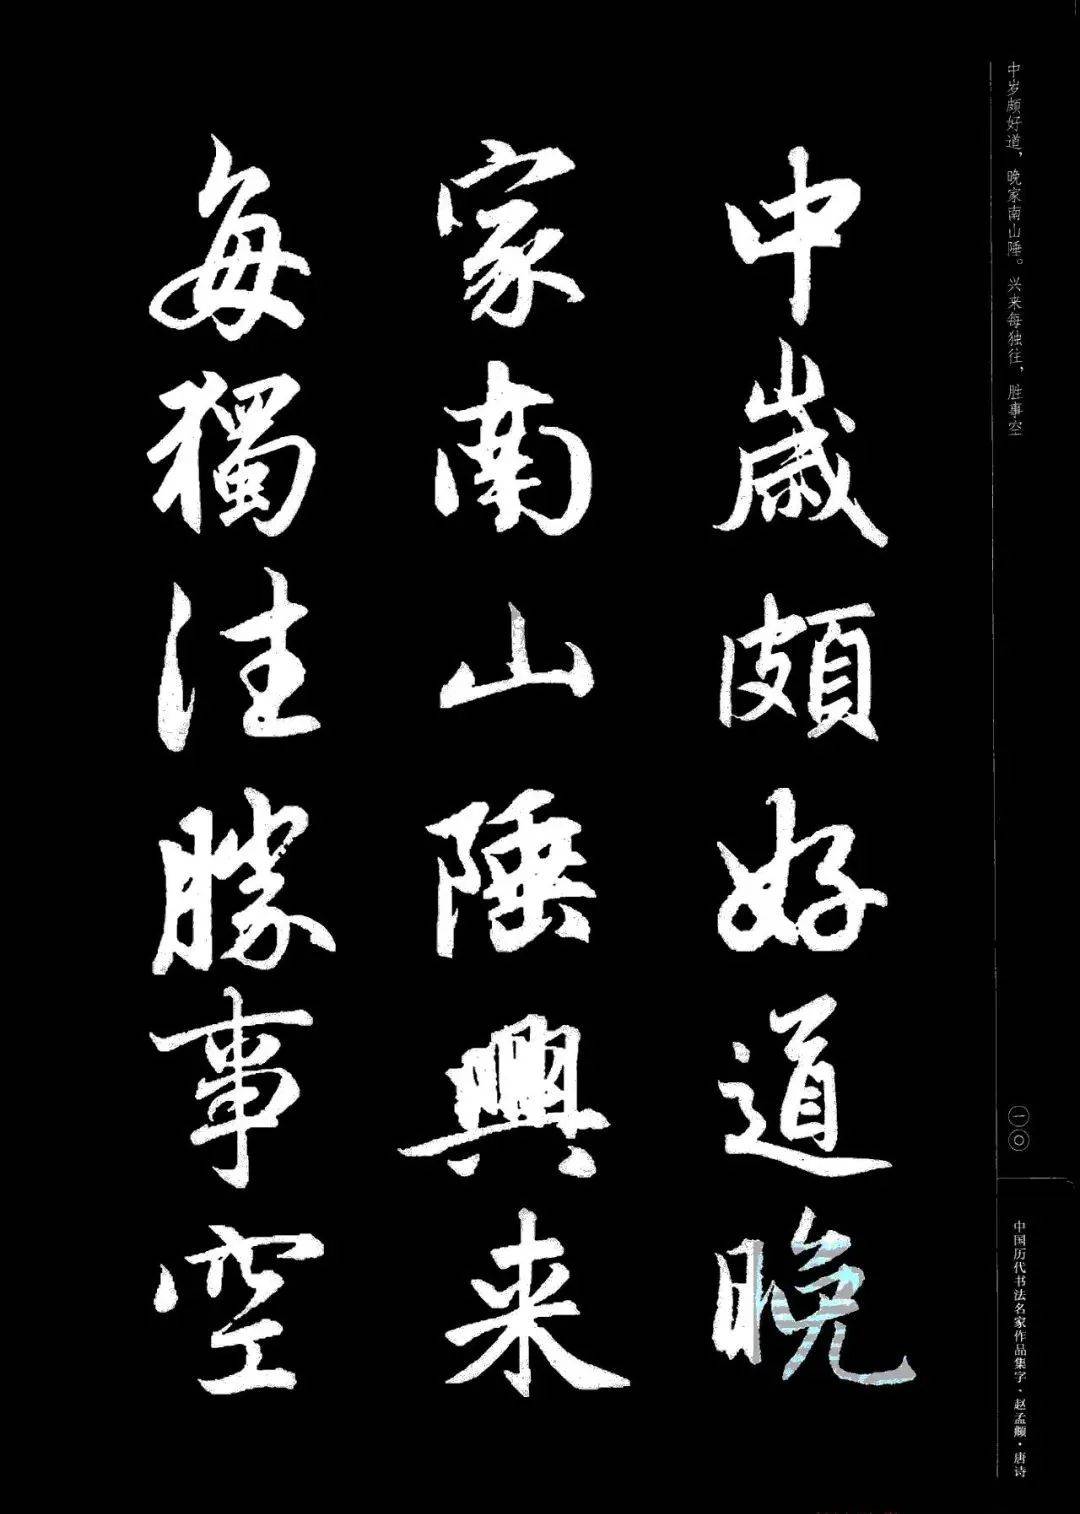 中歲頗好道晚
家南山陲興来
每獨往勝事空
中岁颇好道，晚家南山陲。兴来每独往，胜事空
一〇
中国历代书法名家作品集字·赵孟頫·唐诗